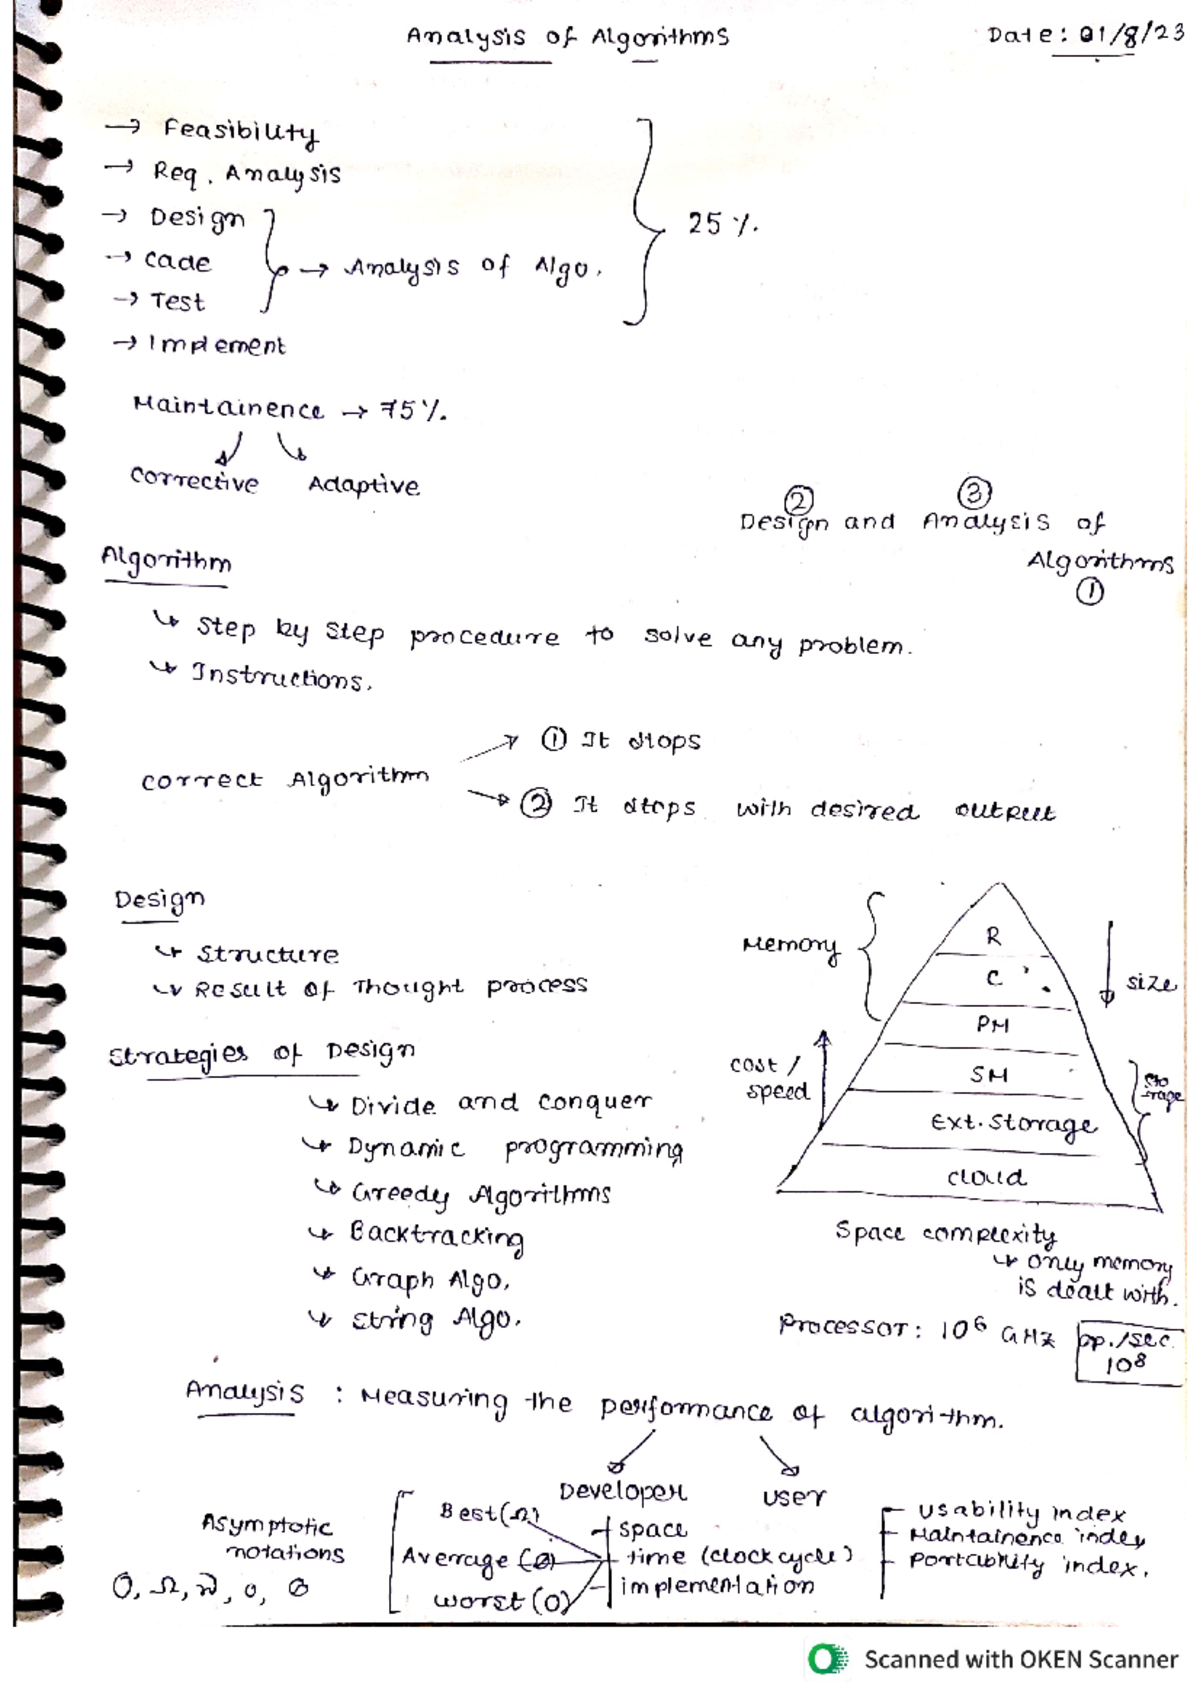 Analysis of Algorithms
Date: 01/8/23
→ Feasibility
→ Req. Analysis
→ Design
→ Code
→ Test
→ Analysis of Algo.
→ Implement
25%.
Maintainence → 75%.
Corrective Adaptive
② ③
Design and Analysis of
Algorithms
①
Algorithm
↳ Step by step procedure to solve any problem.
↳ Instructions.
Correct Algorithm
→ ① It stops
→ ② It stops with desired output
Design
↳ Structure
↳ Result of Thought process
Strategies of Design
↳ Divide and conquer
↳ Dynamic programming
↳ Greedy Algorithms
↳ Backtracking
↳ Graph Algo.
↳ String Algo.
Memory
R
C
PM
SM
Ext. Storage
Cloud
size
cost /
speed
sto
rage
Space complexity
↳ only memory
is dealt with.
Processor: 10⁶ GHz
op./sec.
10⁸
Analysis : Measuring the performance of algorithm.
Developer
User
Asymptotic
notations
O, Ω, o,
Best (Ω)
Average (Θ)
Worst (O)
space
time (clock cycle)
implementation
Usability index
Maintainence index
Portability index.
Scanned with OKEN Scanner